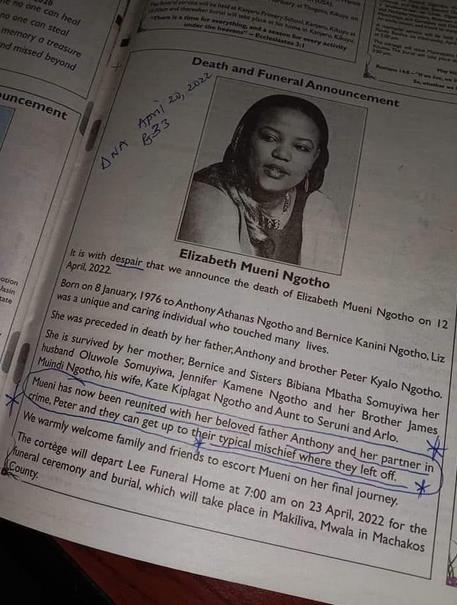 e no one can heal
no one can steal
memory a treasure
nd missed beyond
uncement
service will be held at Kanjeru Primary School, Kanjeru, Kikuyu on
burial will take place at his home in Kanjeru, Kikuyu
"There is a time for everything, and a season for every activity
under the heavens" – Ecclesiastes 3:1
Death and Funeral Announcement
DNA April 20, 2022
B33
Elizabeth Mueni Ngotho
It is with despair that we announce the death of Elizabeth Mueni Ngotho on 12
April, 2022.
Born on 8 January, 1976 to Anthony Athanas Ngotho and Bernice Kanini Ngotho, Liz
was a unique and caring individual who touched many lives.
She was preceded in death by her father, Anthony and brother Peter Kyalo Ngotho.
She is survived by her mother, Bernice and Sisters Bibiana Mbatha Somuyiwa her
husband Oluwole Somuyiwa, Jennifer Kamene Ngotho and her Brother James
Muindi Ngotho, his wife, Kate Kiplagat Ngotho and Aunt to Seruni and Arlo.
Mueni has now been reunited with her beloved father Anthony and her partner in
crime, Peter and they can get up to their typical mischief where they left off.
We warmly welcome family and friends to escort Mueni on her final journey.
The cortège will depart Lee Funeral Home at 7:00 am on 23 April, 2022 for the
funeral ceremony and burial, which will take place in Makiliva, Mwala in Machakos
County.